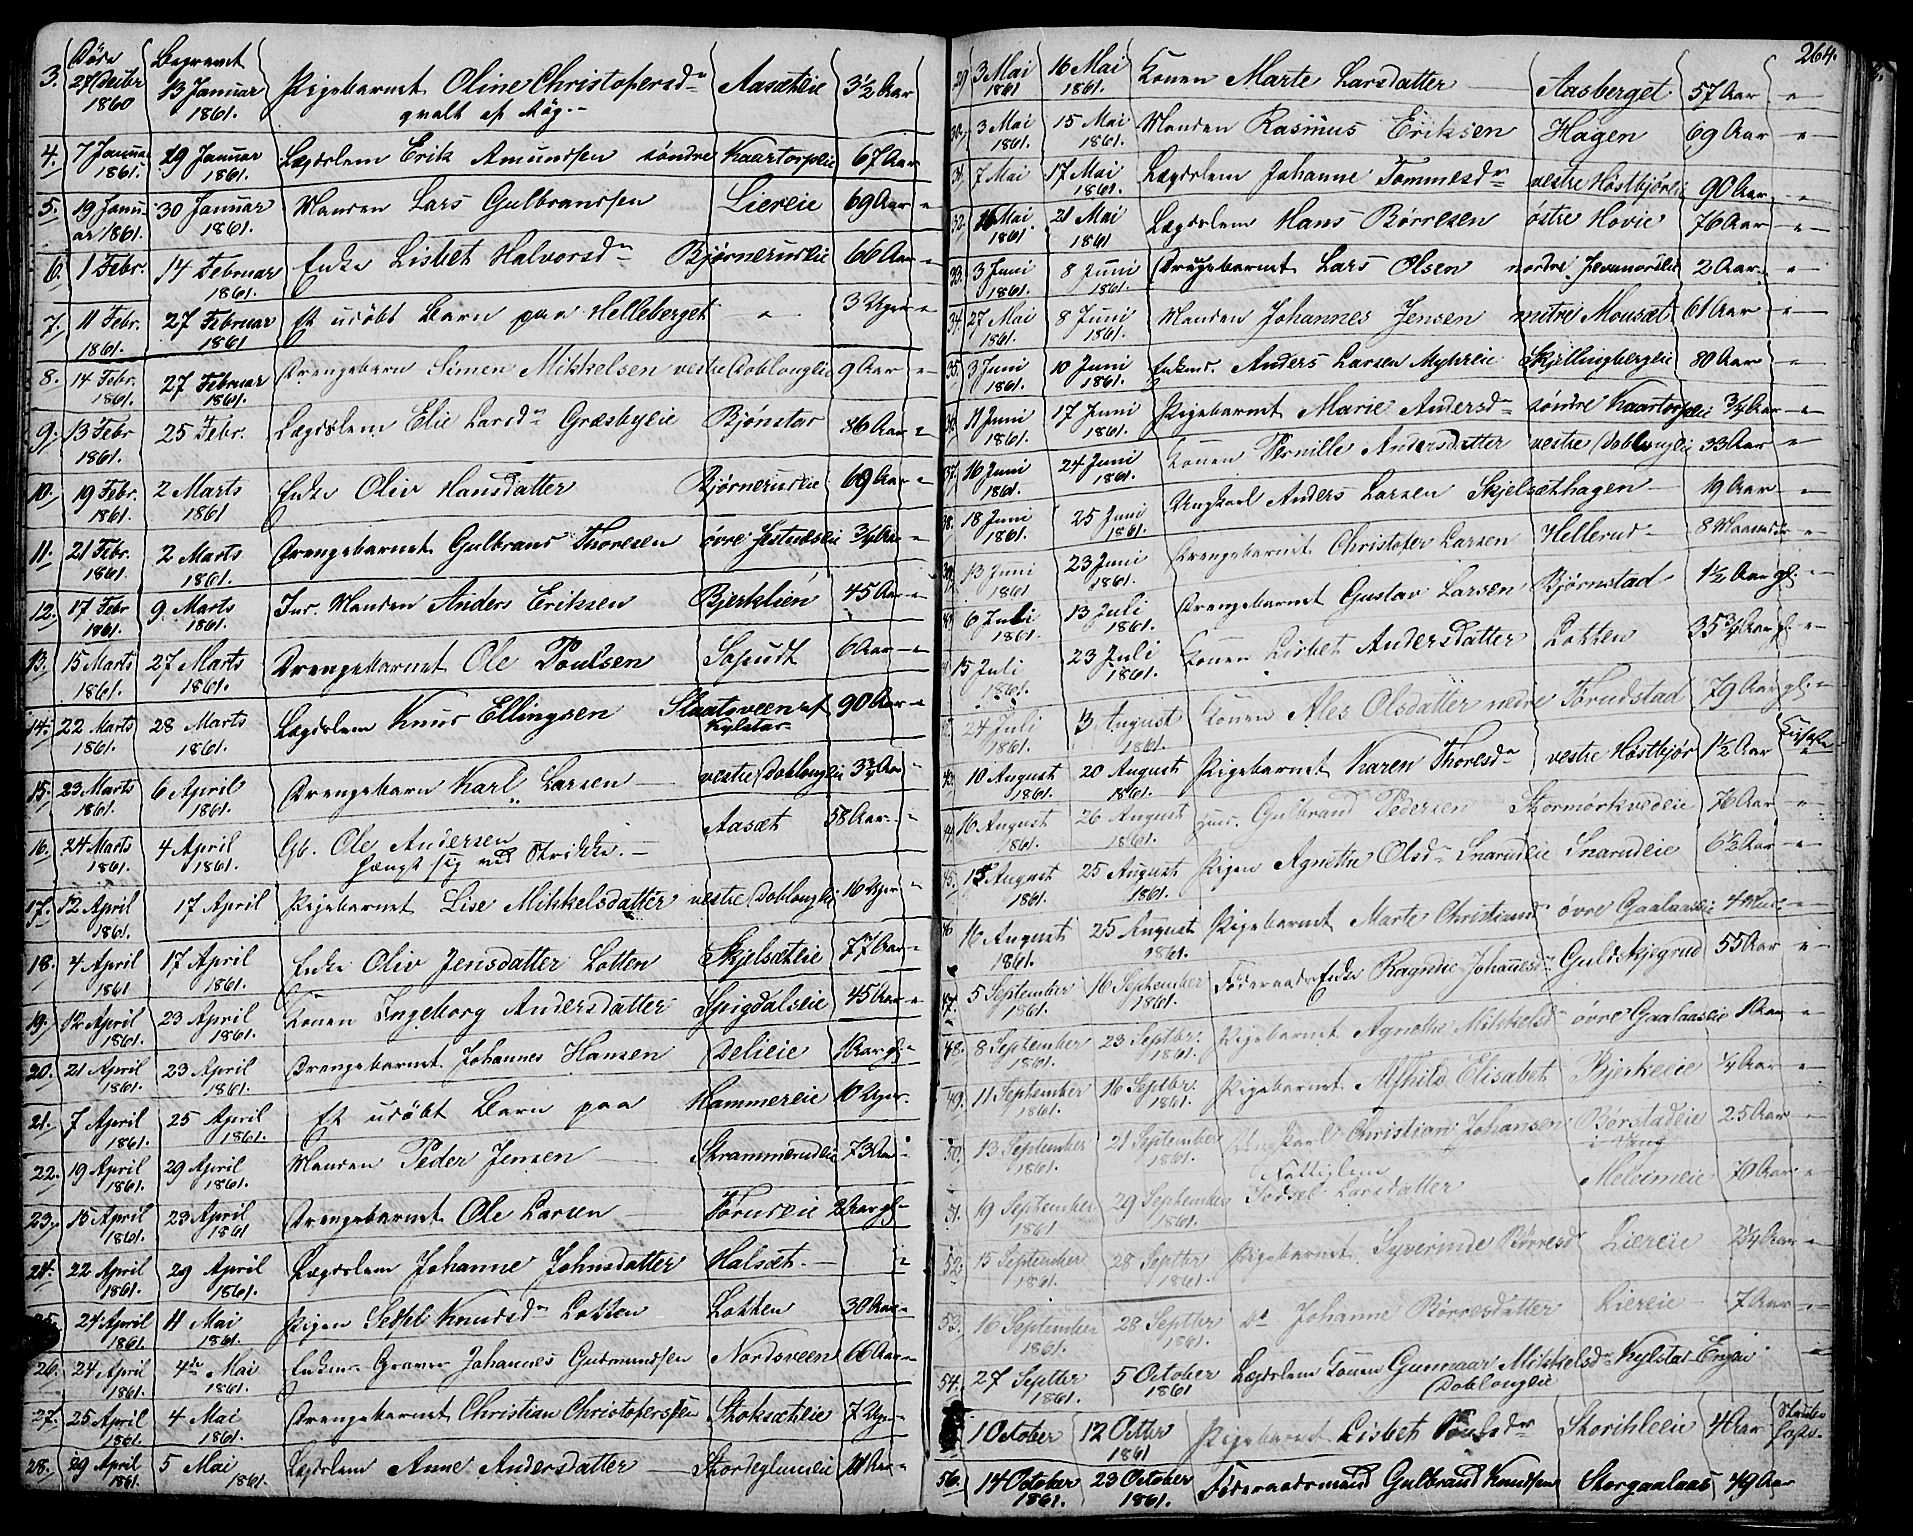 Døde Begravet
3. 27 Decber 13 Januar Pigebarnet Oline Christophersdr Aasætheie 3½ Aar
1860 1861. qvalt af Røg.
4. 7 Januar 29 Januar Lægdslem Erik Amundsen søndre Kaartorpeie 67 Aar
1861. 1861.
5. 19 Janu- 30 Januar Manden Lars Gulbrandsen Liereie 69 Aar "
ar 1861. 1861.
6. 1 Febr. 14 Februar Enke Lisbet Halvorsdr Bjørnerudeie 66 Aar "
1861.
7. 11 Febr. 27 Februar Et udøbt Barn paa Helleberget " 3 Uger "
1861. 1861
8. 14 Febr. 27 Februar Drengebarn Simen Mikkelsen vestre Doblougeie 9 Aar "
1861. 1861.
9. 13 Febr 25 Febr. Lægdslem Elie Larsdr Græsbyeie Bjønstad 86 Aar "
1861.
10. 19 Febr. 2 Marts Enke Oliv Hansdatter Bjørnerudeie 69 Aar "
1861. 1861
11. 21 Febr. 2 Marts Drengebarnet Gulbrand Thoresen øvre ¾ Aar "
1861. 1861.
12. 17 Febr 9. Marts Inds. Manden Anders Eriksen Bjerklien 45 Aar "
1861. 1861.
13. 15 Marts 27 Marts Drengebarnet Ole Poulsen 6 Aar "
1861. 1861.
14. 22 Marts 28 Marts Lægdslem Knud Ellingsen Slaatsveen af 90 Aar "
1861. 1861. Kylstad
15. 23 Marts 6 April Drengebarn Karl Larsen vestre Doblougeie 3¾ Aar "
1861. 1861.
16. 24 Marts 4 April Gb. Ole Andersen Aasæt 58 Aar "
1861. 1861. hængt sig ved Strikke.
17. 12 April 17 April Pigebarnet Lise Mikkelsdatter vestre Doblougeie 16 Uger "
1861.
18. 4 April 17 April Enke Oliv Jensdatter Lotten Skjelsætheie 77 Aar "
1861 1861.
19. 12 April 23 April Konen Ingeborg Andersdatter Spigdalseie 45 Aar "
1861. 1861.
20. 21 April 23 April Drengebarnet Johannes Hansen Delieie 1 Aar gl. "
1861. 1861.
21. 7 April 25 April Et udøbt Barn paa Hammereie 10 Uger.
1861. 1861.
22. 19 April 29 April Manden Peder Jensen Skrammerudeie 73 Aar "
1861. 1861.
23. 15 April 23 April Drengebarnet Ole Larsen Torudeie 2 Aar gl. "
1861. 1861
24. 22 April 29 April Lægdslem Johanne Johnsdatter Halsæt. "
1861. 1861.
25. 24 April 11 Mai Pigen Knudsdr Lotten Lotten 30 Aar "
1861. 1861.
26. 24 April 4de Mai Enkem. Graver Johannes Gudmundsen Nordsveen 66 Aar "
1861. 1861.
27. 25 April 4 Mai Drengebarnet Christian Christophersen Stoksætheie 7 Uger "
1861. 1861.
28. 29 April 5 Mai Lægdslem Anne Andersdatter 11 Aar "
1861. 1861.
264.
29. 3 Mai 16 Mai Konen Marte Larsdatter Aasberget 57 Aar "
1861 1861.
30. 3 Mai 15 Mai Manden Rasmus Eriksen Hagen 69 Aar "
1861. 1861.
31. 7 Mai 17 Mai Lægdslem Johanne Tommesdr vestre Høstbjøreie 90 Aar "
1861.
32. 16 Mai 21 Mai Lægdslem Hans Børresen østre Hovie 76 Aar "
1861. 1861
33. 3 Juni 8 Juni Drengebarnet Lars Olsen nordre 2 Aar "
1861. 1861.
34. 27 Mai 8 Juni Manden Johannes Jensen mitre Mousæt 61 Aar "
1861. 1861.
35. 3 Juni 10 Juni Enkem. Anders Larsen Myhreie Skjellingbergeie 80 Aar "
1861. 1861.
36. 11 Juni 17 Juni Pigebarnet Marie Andersdr søndre Kaartorpeie ¾ Aar "
1861. 1861.
37. 16 Juni 24 Juni Konen Pernille Andersdatter vestre Doblougeie 33 Aar "
1861. 1861.
38. 18 Juni 25 Juni Ungkarl Anders Larsen Skjelsæthagen 19 Aar "
1861. 1861.
39. 13 Juni 23 Juni Drengebarnet Christofer Larsen Hellerud 8 Maaneder "
1861 1861.
40. 6 Juli 13 Juli Drengebarnet Gustav Larsen Bjørnstad 1½ Aar gl. "
1861. 1861.
41. 15 Juli 23 Juli Konen Lisbet Andersdatter Lotten 35¾ Aar gl. "
1861. 1861.
42. 24 Juli 3 August Konen Ales Olsdatter nedre Torudstad 79 Aar gl. "
1861. 1861.
43. 10 August 20 August Pigebarnet Karen Thoresdr vestre Høstbjør 1½ Aar
1861. 1861.
44. 16 August 26 August Inds. Gulbrand Pedersen Stormørkvedeie 76 Aar "
1861. 1861.
45. 13 August 25 August Pigen Agnethe Olsdr Snarudeie Snarudeie 6½ Aar "
1861. 1861.
46 16 August 25 August Pigebarnet Marte Christiansd øvre Gaalaaseie "
1861. 1861.
47. 5 September 16 September Føderaads Enke Ragnhe Johannesdr Guldskjegrud 55 Aar "
1861. 1861.
48. 8 September 23 Septbr. Pigebarnet Agnethe Mikkelsd øvre Gaalaaseie 1 Aar "
1861. 1861.
49. 11 September 16 Septbr. Pigebarnet Alfhild Elisabet Bjerkeeie ¼ Aar "
1861. 1861.
50. 13 September 21 September Ungkarl Christian Johansen Børstadeie 25 Aar "
1861. 1861. i Vang
51. 19 September 29 September Fattiglem Sidsel Larsdatter Meleimeie 70 Aar "
1861 1861.
52. 15 September 28 Septbr Pigebarnet Syverinde Børresd Liereie 2¼ Aar "
1861. 1861.
53. 16 September 28 Septbr do Johanne Børresdatter Liereie 7 Aar "
1861. 1861.
54. 27 Septbr 5 October Lægdslem Konen Gunnaar Mikkelsdr Kylstad Engen "
1861. 1861 Doblougeie
1 October 12 Octbr Pigebarnet Lisbet Poulsdr 4 Aar
1861
56. 14 October 23 October Føderaadsmand Gulbrand Knudsen Storgaalaas 49 Aar
1861. 1861.